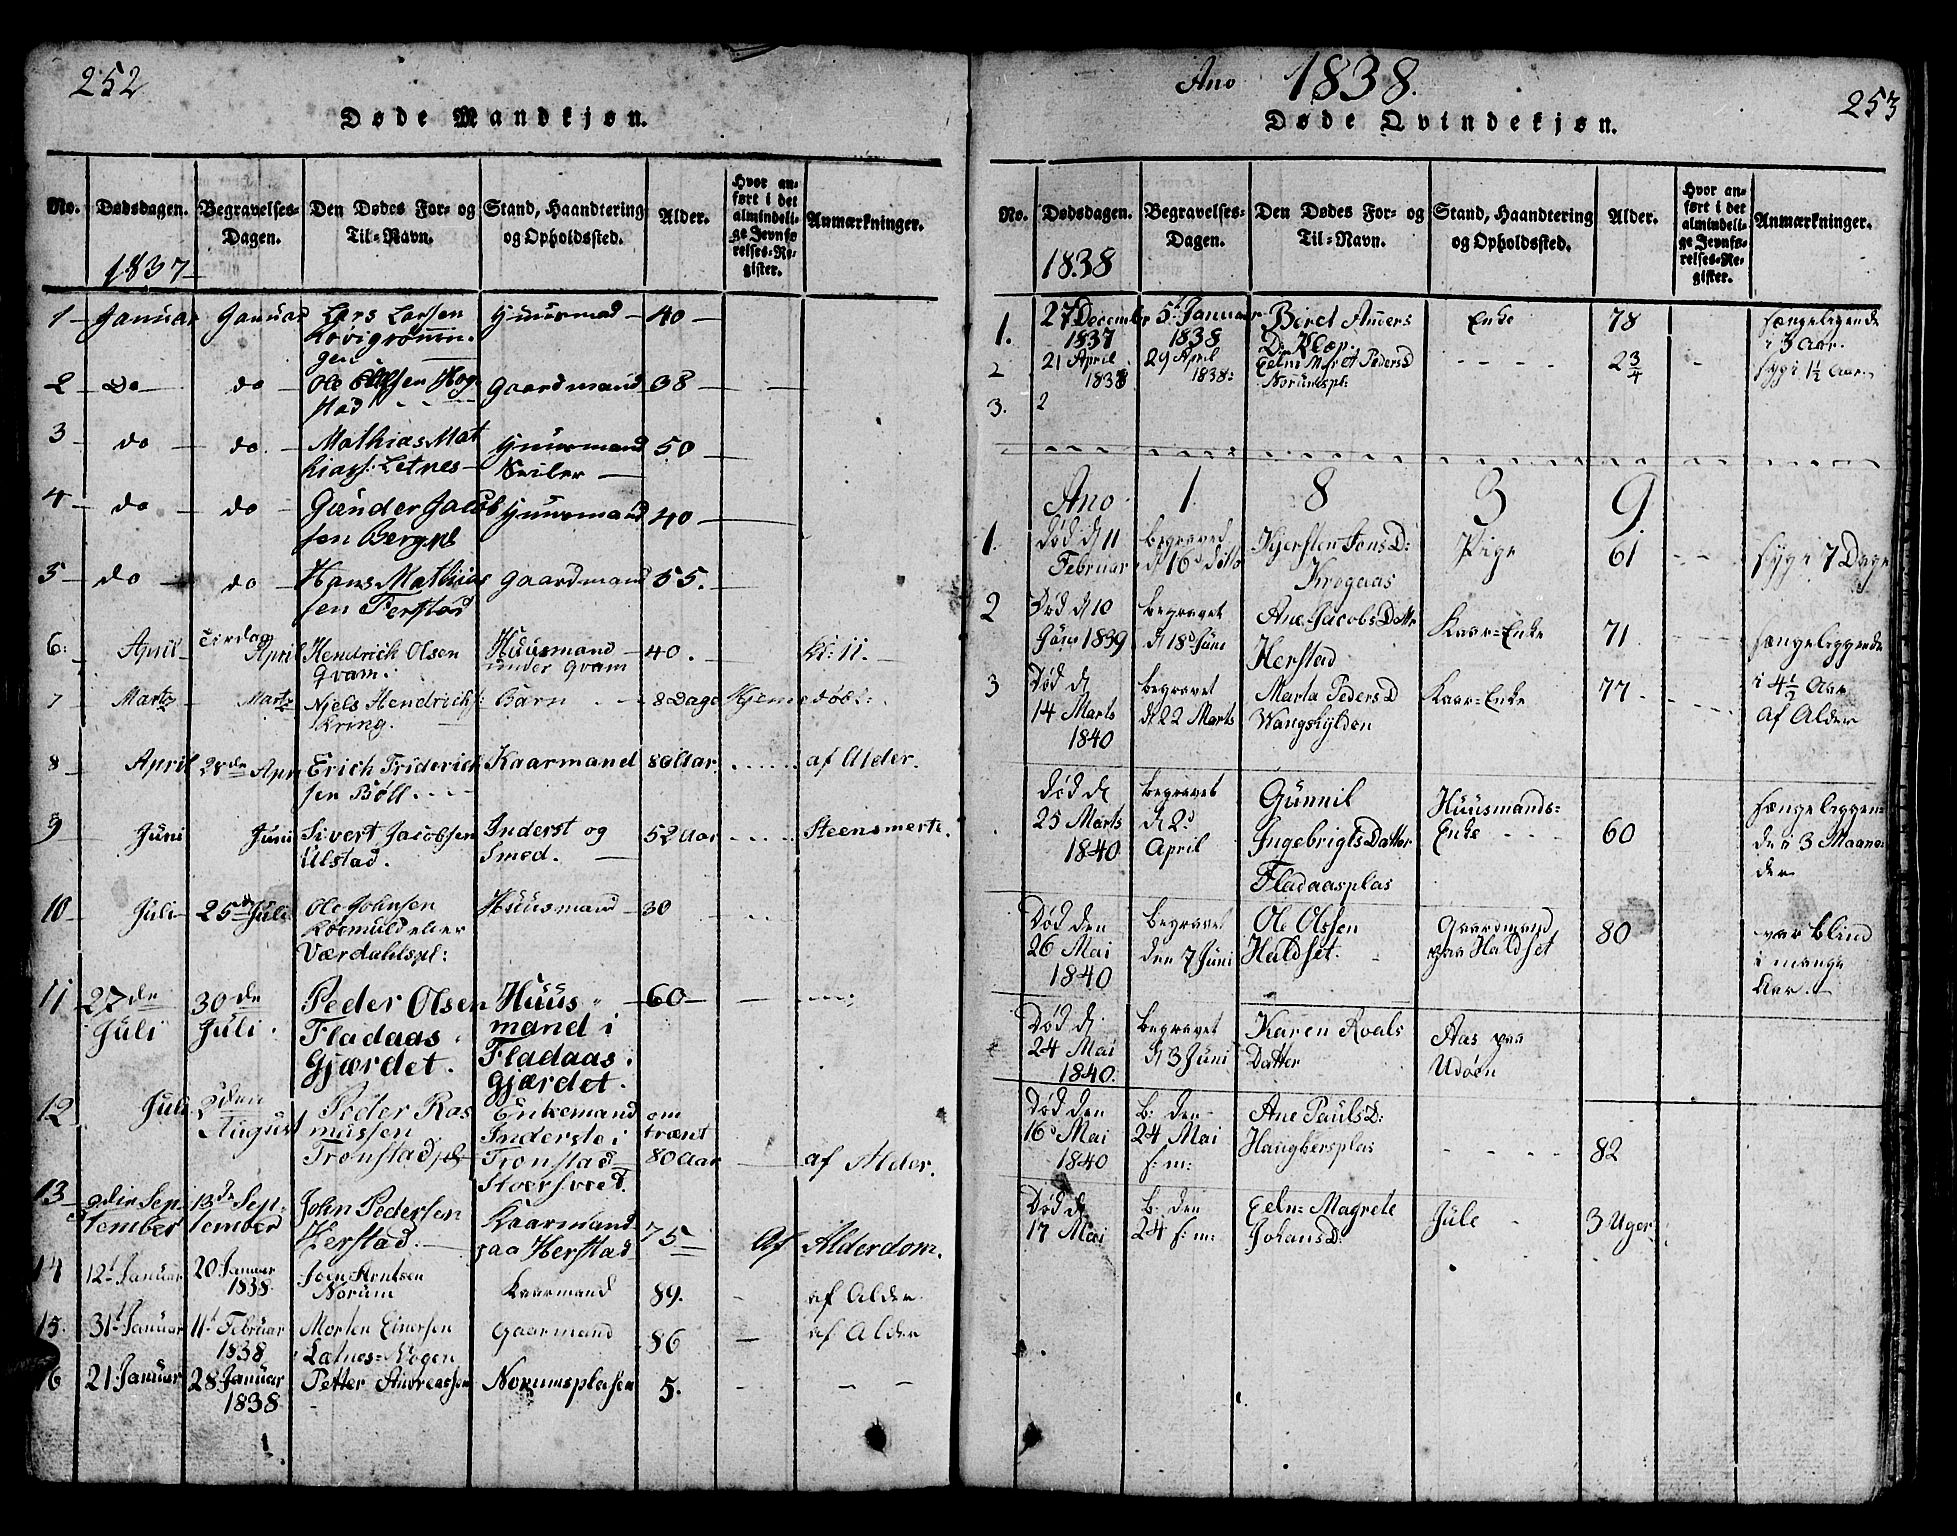 252
Døde Mandkjøn.
No. Dødsdagen. Begravelses- Dagen. Den Dødes For- og Til-Navn. Stand, Haandtering og Opholdssted. Alder. Hvor anført i det almindelige Jevnførelses-Register. Anmærkninger.
1837
1 Januar Januar Lars Larsen Huusmad 40
2 Do do Ole Gaardmand 38
stad
3 do do Mathias Mat Huusmand 50
Letnes
4 do do Gunder Jacob Huusmand 40
sen Berg
5 do do Hans Mathias Gaardmand 55.
sen Ferstad
6: April Tirdag April Hendrich Olsen Huusmand 40. Kl: 11.
Qvam. under Qvam
7 Marts Marts Niels Hendrichs: Barn 8 Dage Hjemedøbt:
Kring.
8 April 28de Apri Erich Friderich Kaarmand 80 Aar af Alder.
sen Böll.
9 Juni Juni Sivert Jacobsen Inderst og 52 Aar Steensmerte.
Ulstad. Smed.
10 Juli 25de Juli Ole Johnsen Huusmand 30
Værdahlspl:
11 27de 30de Peder Olsen Huus 60
Juli Juli. Fladaas mand i
Gjærdet. Fladaas
Gjærdet.
12 Juli 2den Peder Ras Enkemand om
August mussen Inderste i trænt
Tronstad Tronstad 80 Aar af Alder.
13 9die Sep 13de Sep John Pedersen Kaarmand 75 Af Alderdom.
tember tember Herstad. paa Herstad
14 12t Januar 20 Januar 1838. Joen Arntsen Kaarmand 89. af Alder.
Norum
15. 31t Januar 11t Februar Morten Einersen Gaarmand 86 af Alder
1838
16 21 Januar 28 Januar Petter Andreassen Norumsplasen 5.
1838
Ano 1838.
253
Døde Qvindekjøn.
No. Dødsdagen. Begravelses- Dagen. Den Dødes For- og Til-Navn. Stand, Haandtering og Opholdssted. Alder. Hvor anført i det almindelige Jevnførelses-Register. Anmærkninger.
1838
1. 27 December 5t Januar Beret Anders Enke 78 sængeligende
1837 1838 D. i 3 Aar.
2 21 April 29 April Eeln Maret Peders D 2 3/4 syg i 1½ Aar.
1838 1838: Norumspl:
3. 2
Ano 1 8 3 9.
1. Død d 11 Begraved Kjersten Jons D: Pige 61 syg i 7 Dage
Februar d 16d ditto Krogaas
2 Død d 10 Begravet Ane Jacobs Datter Kaar=Enke 71 sængeliggende
Juni 1839 d 18d Juni Herstad
3 Død d Begravet Marta Peders D Kaar=Enke 77 i 4½ Aar
14 Marts d 22 Marts Wangshylden af Alder
1840
Død d Begravet Gunnil Huusmands= 60 sængeliggen=
25 Marts d 2d Ingebrigts Datter Enke de i 3 Maane
1840 April Fladaasplas der
Død den Begravet Ole Olssen Gaardmand 80 var blind
26 Mai den 7 Juni Haldset. paa Haldset i mange
1840 Aar.
Død d. Begravet Karen Roals Aas paa
24 Mai d 3 Juni Datter Udøen
1840.
Død den B: den Ane Pauls D:
16d Mai 24 Mai Haugbersplas 82
1840 s: m:
Død d B: den Eeln= Magrete Jule 3 Uger
17 Mai 24 s: m: Johans D: